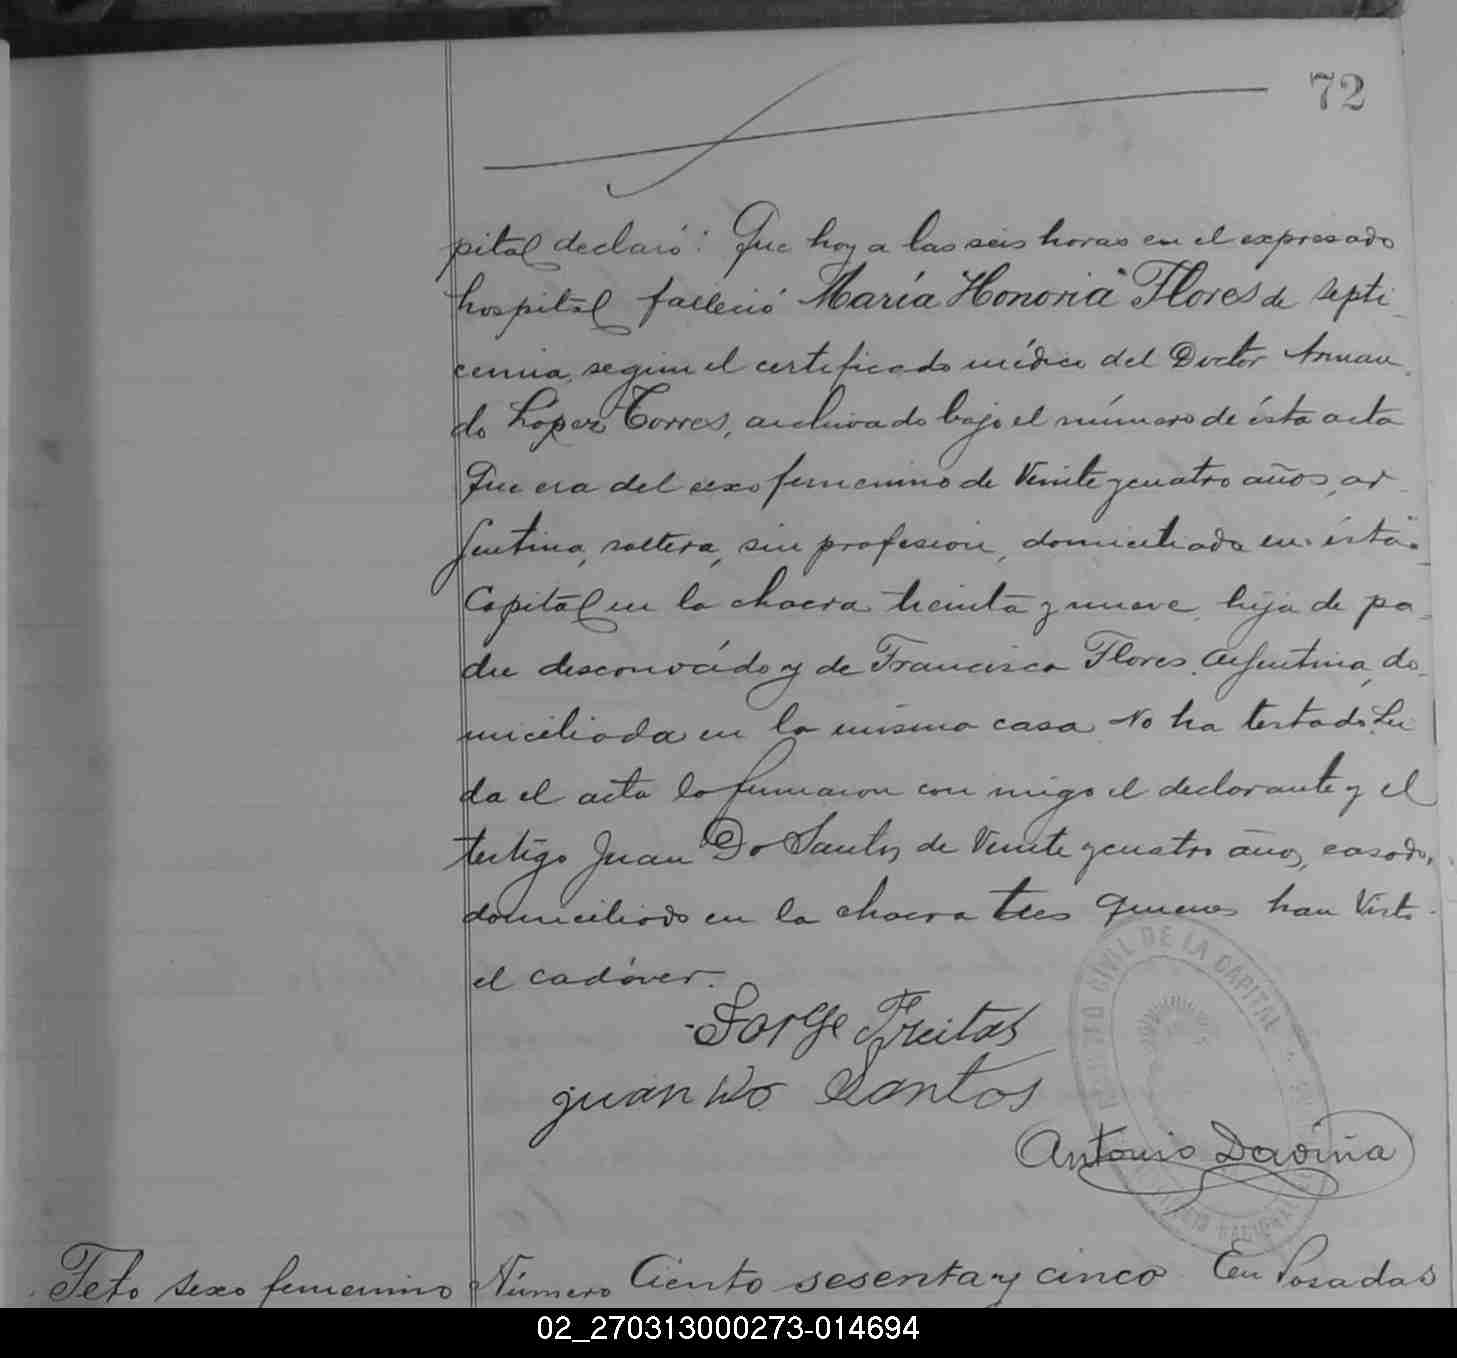 72
pital declaró: Que hoy a las seis horas en el expresado
hospital falleció María "Honoria" Flores de septi
cemia, según el certificado médico del Doctor Arman
do López Torres, archivado bajo el número de ésta acta
Que era del sexo femenino de Veinte y cuatro años, ar
gentina, soltera, sin profesion, domiciliada en ésta
Capital en la chacra treinta y nueve, hija de pa
dre desconocido y de Francisca Flores, argentina, do
miciliada en la misma casa. No ha testado. Lei
da el acta la firmaron con migo el declarante y el
testigo Juan Do Santos de Veinte y cuatro años, casado,
domiciliado en la chacra tres quienes han Visto
el cadáver.
Jorge Freitas
juan Do Santos
REGISTRO CIVIL DE LA CAPITAL
Antonio Daviña
Feto sexo femenino Número Ciento sesenta y cinco En Posadas
02_270313000273-014694